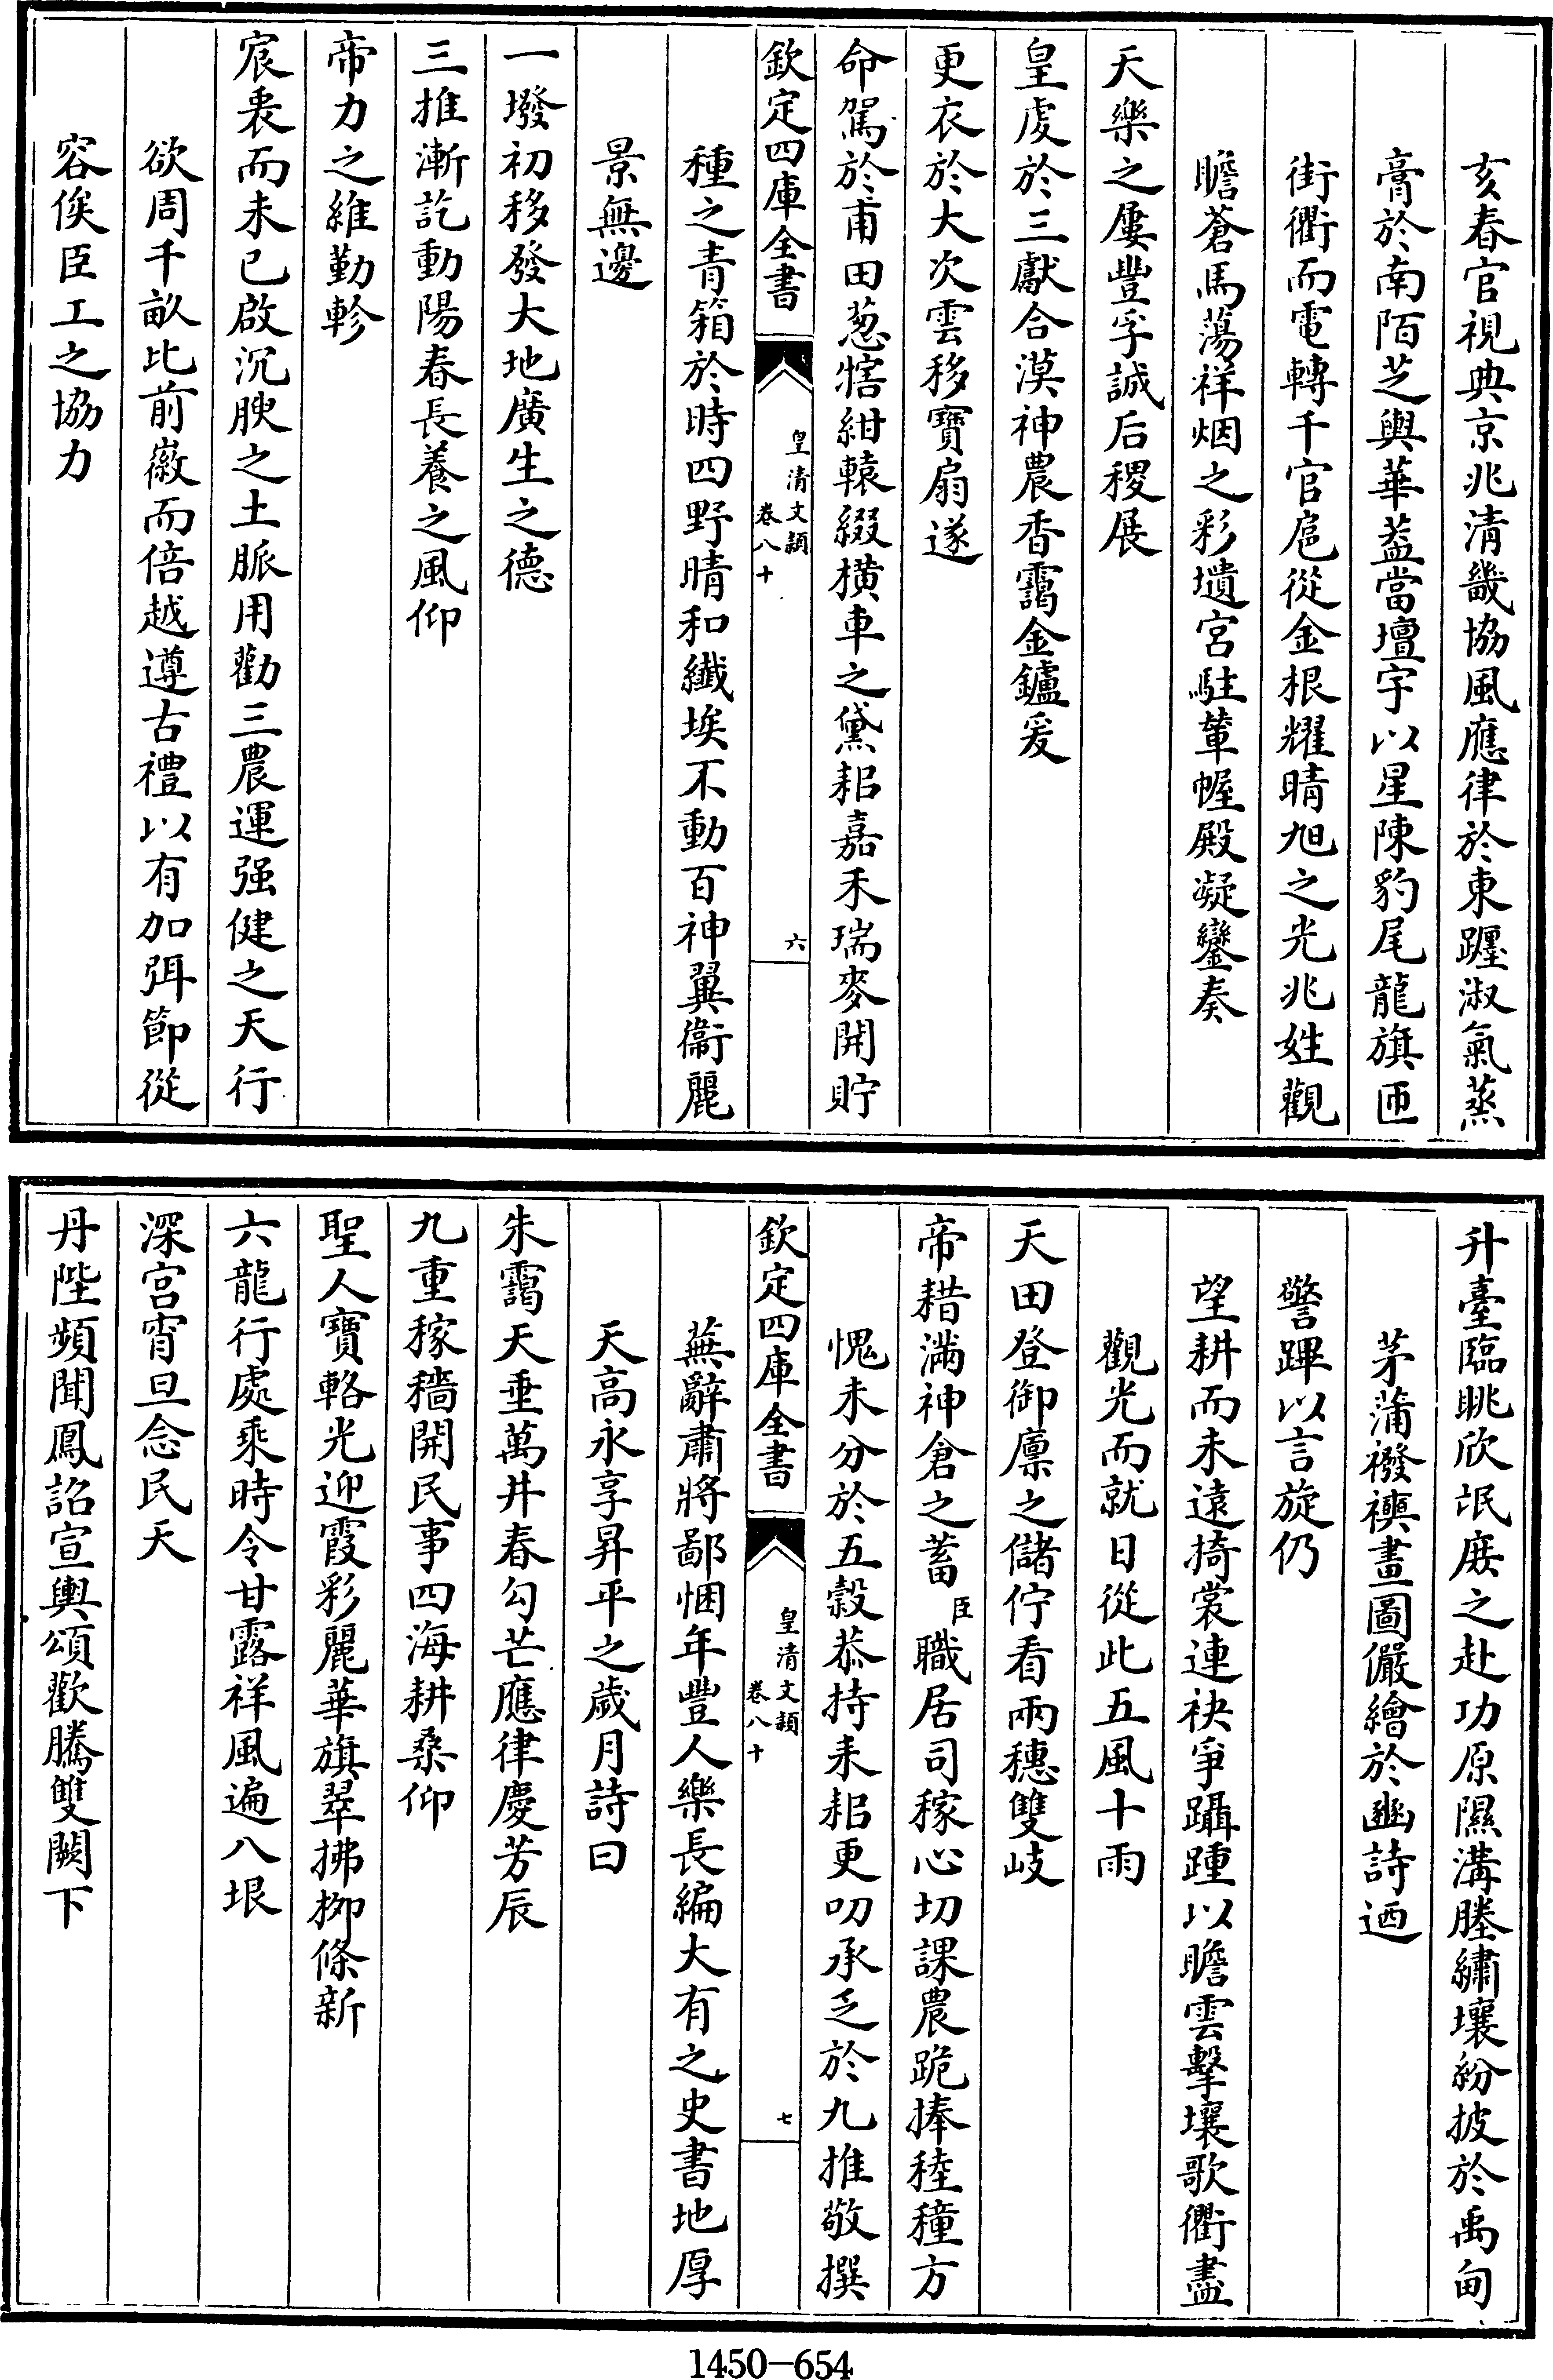 亥春官視典京兆清畿協風應律於東躔淑氣蒸
膏於南陌芝輿華蓋當壇宇以星陳豹尾龍旗匝
街衢而電轉千官扈從金根耀晴旭之光兆姓觀
瞻蒼馬蕩祥烟之彩壝宮駐輦幄殿凝鑾奏
天樂之屢豐孚誠后稷展
皇虔於三獻合漠神農香靄金鑪爰
更衣於大次雲移寶扇遂
命駕於甫田葱犗紺轅綴橫車之黛耜嘉禾瑞麥開貯
欽定四庫全書
皇清文穎
卷八十
六
種之青箱於時四野晴和纖埃不動百神翼衞麗
景無邊
一墢初移發大地廣生之德
三推漸訖動陽春長養之風仰
帝力之維勤軫
宸衷而未已啟沉腴之土脈用勸三農運强健之天行
欲周千畝比前徽而倍越遵古禮以有加弭節從
容俟臣工之協力
升臺臨眺欣氓庶之赴功原隰溝塍繡壤紛披於禹甸
茅蒲襏襫畫圖儼繪於豳詩迺
警蹕以言旋仍
望耕而未遠掎裳連袂爭躡踵以瞻雲擊壤歌衢盡
觀光而就日從此五風十雨
天田登御廩之儲佇看兩穗雙岐
帝耤滿神倉之蓄臣職居司稼心切課農跪捧稑穜方
愧未分於五穀恭持耒耜更叨承乏於九推敬撰
欽定四庫全書
皇清文穎
卷八十
七
蕪辭肅將鄙悃年豐人樂長編大有之史書地厚
天高永享昇平之歲月詩曰
朱靄天垂萬井春勾芒應律慶芳辰
九重稼穡開民事四海耕桑仰
聖人寶輅光迎霞彩麗華旗翠拂柳條新
六龍行處乘時令甘露祥風遍八垠
深宮宵旦念民天
丹陛頻聞鳳詔宣輿頌歡騰雙闕下
1450-654